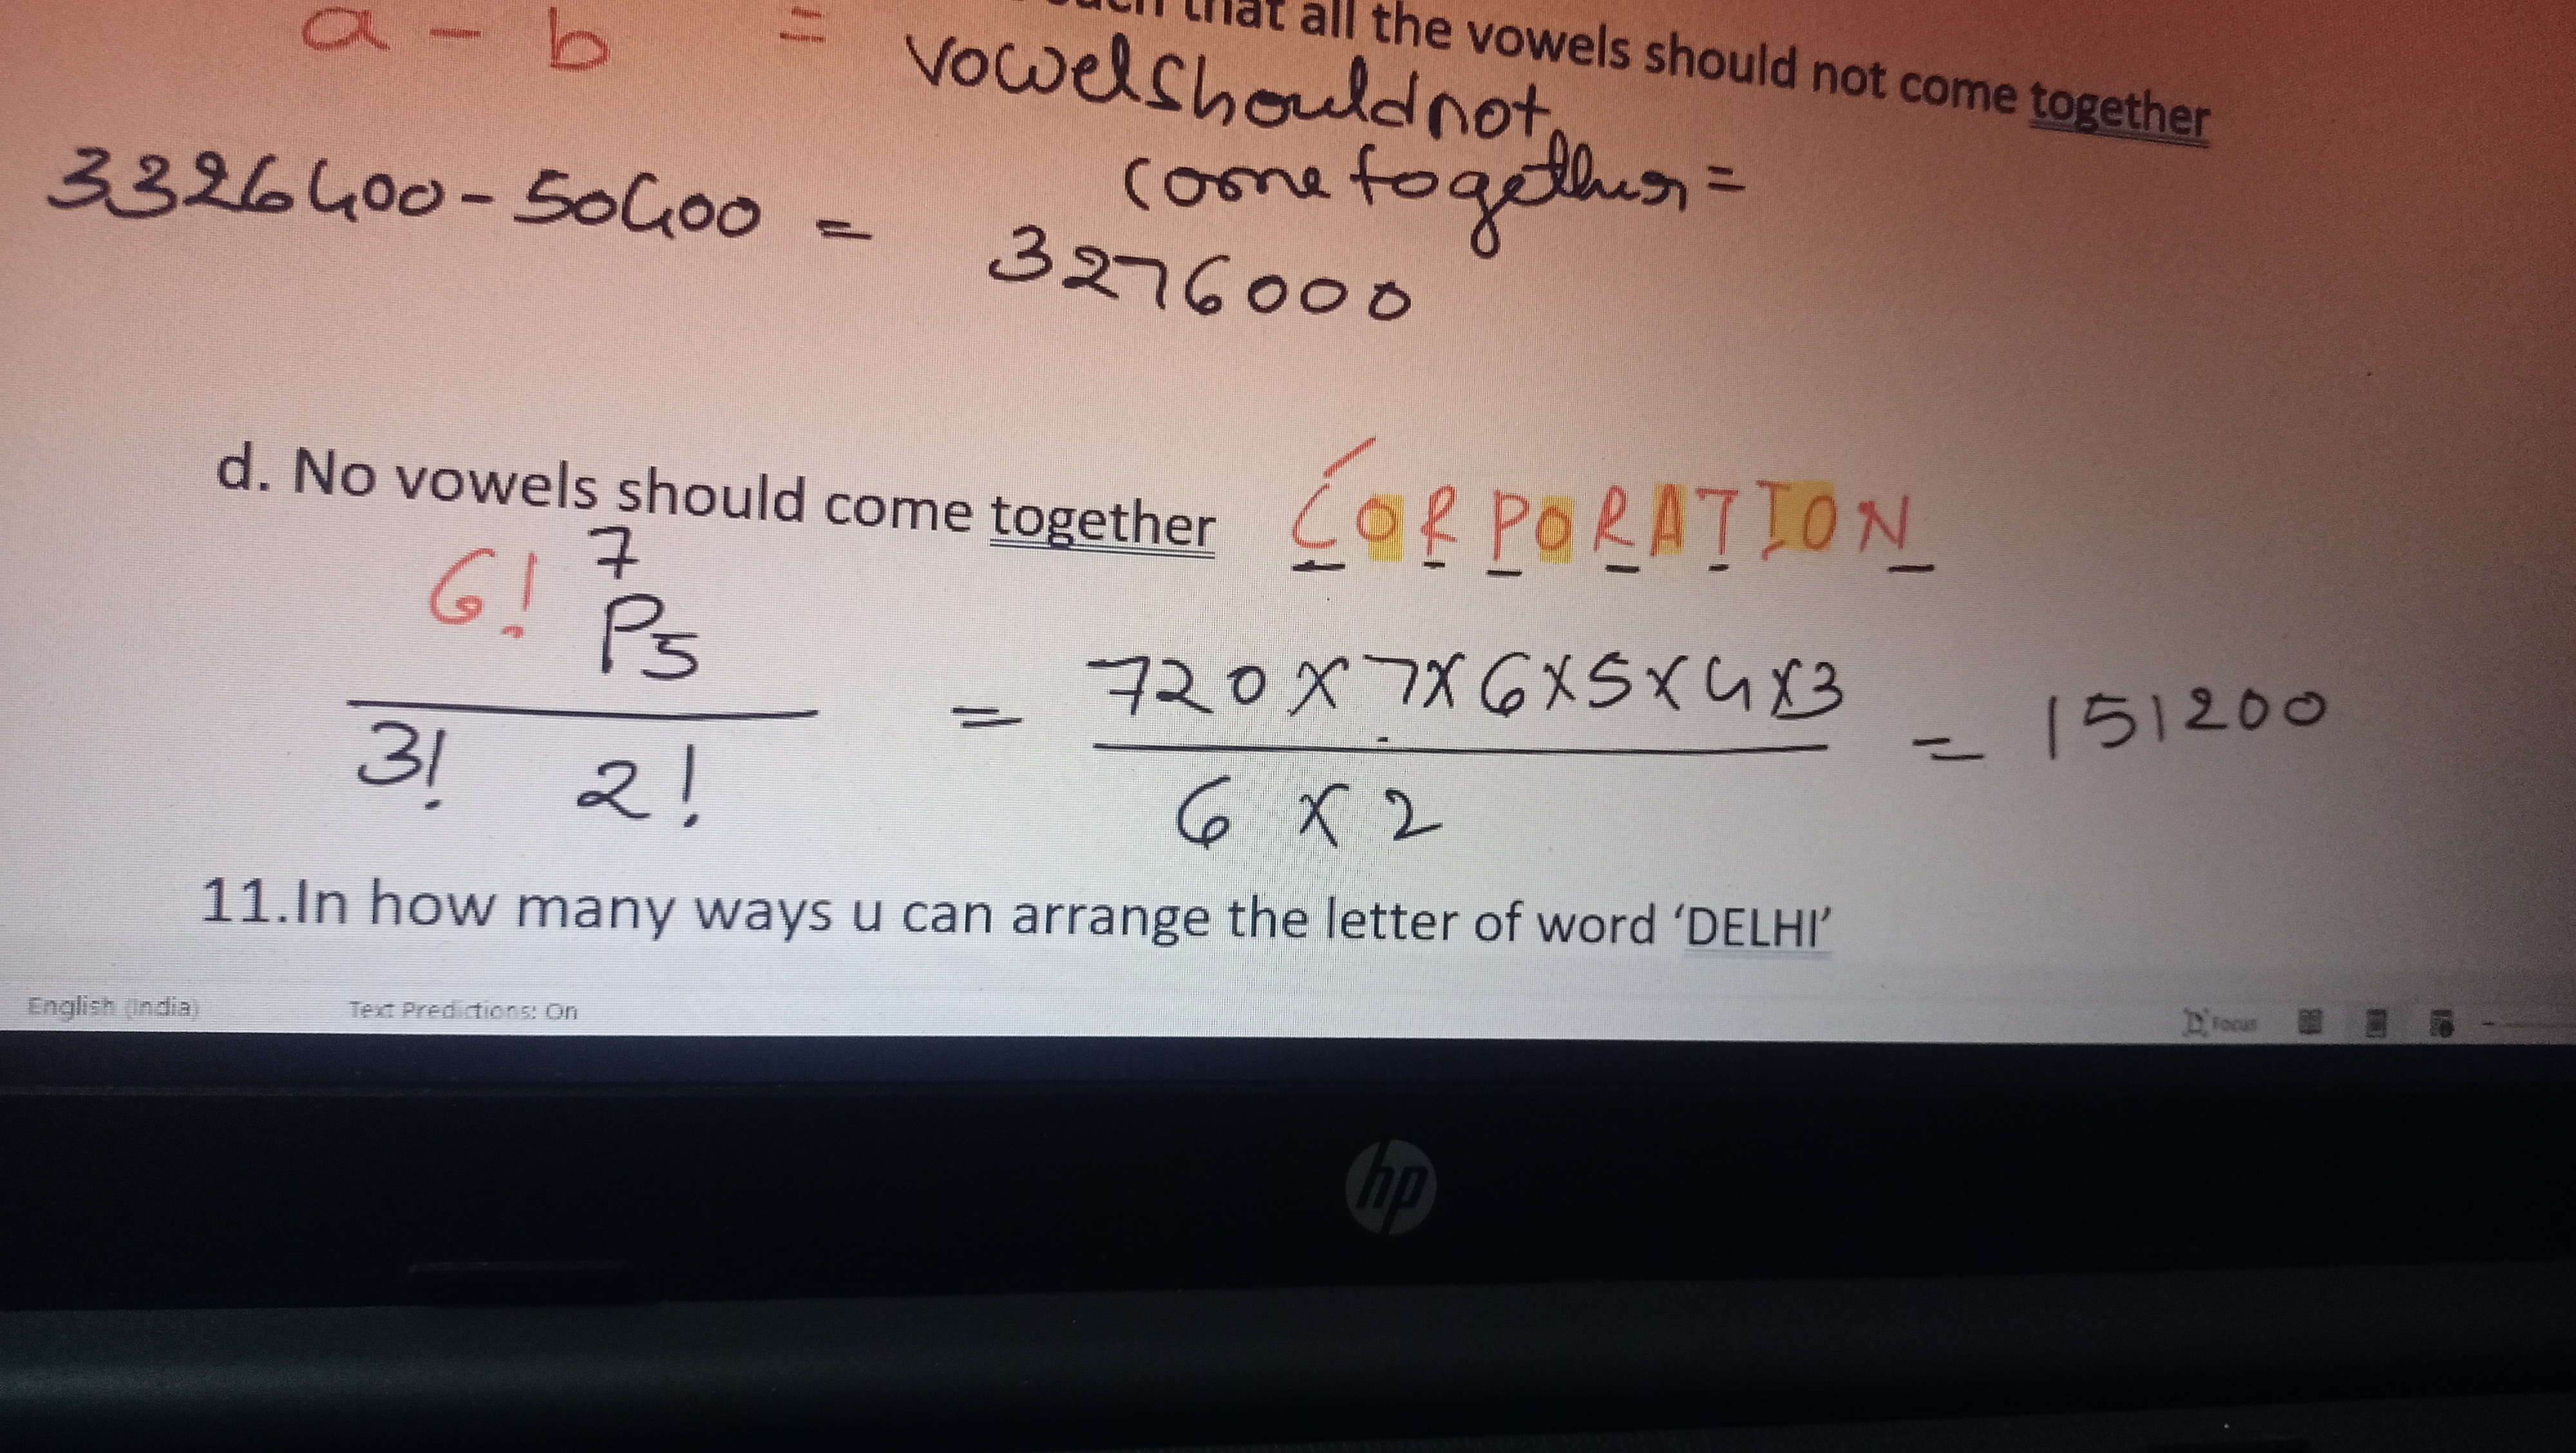 that all the vowels should not come together
a - b = vowel should not
come together =
3326400 - 50400 = 3276000
d. No vowels should come together CORPORATION
6! 7P5 / 3! 2! = 720 x 7x6x5x4x3 / 6 x 2 = 151200
11.In how many ways u can arrange the letter of word ‘DELHI’
English (India) Text Predictions: On Focus
hp